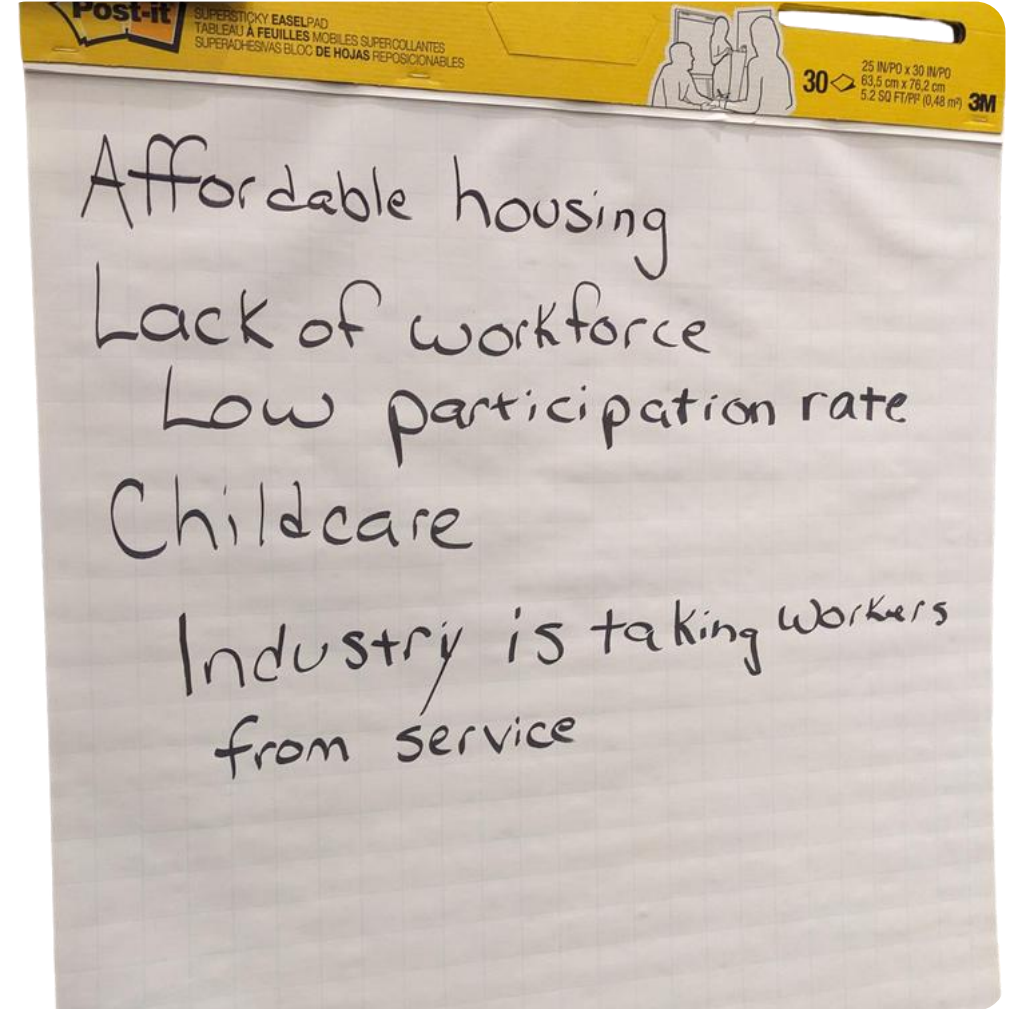 Post-it
SUPERSTICKY EASELPAD
TABLEAU À FEUILLES MOBILES SUPERCOLLANTES
SUPERADHESIVAS BLOC DE HOJAS REPOSICIONABLES
30
25 IN/PO x 30 IN/PO
63,5 cm x 76,2 cm
5.2 SQ FT/PI² (0,48 m²)
3M
Affordable housing
Lack of workforce
Low participation rate
Childcare
Industry is taking workers
from service